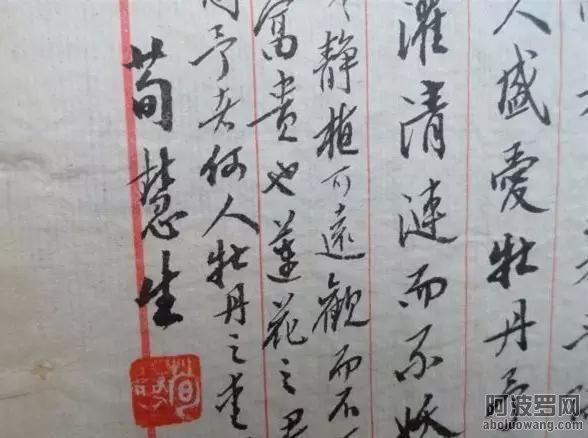 人盛愛牡丹予
濯清漣而不妖
静植可遠觀而不
富貴也蓮花之君
予者何人牡丹之愛
荀慧生
荀
阿波罗网
aboluowang.com